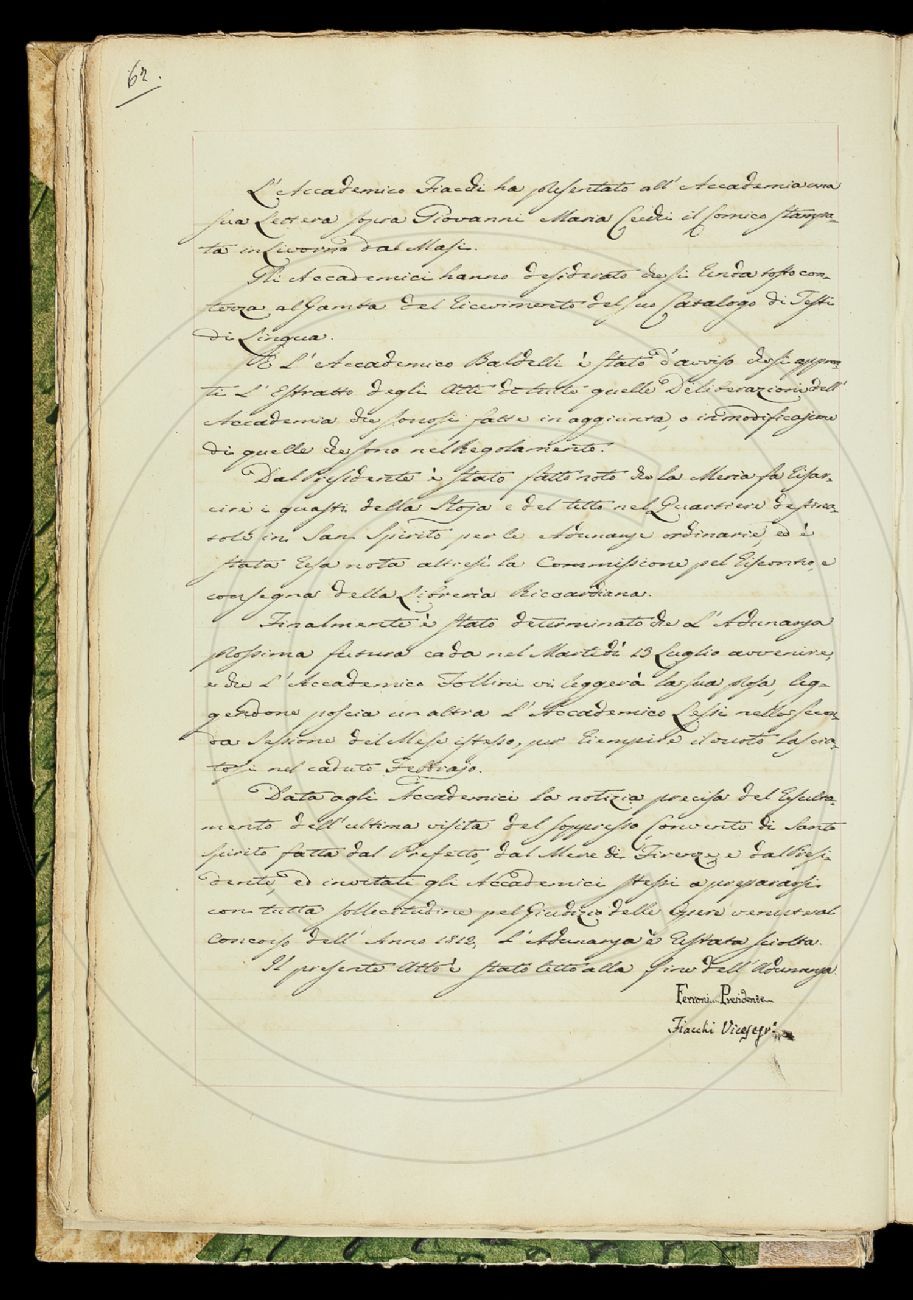 62.
L'Accademico Fiacchi ha presentato all'Accademia una
sua Lettera sopra Giovanni Maria Cecchi il Comico stampa-
ta in Livorno dal Masi.
Gli Accademici hanno desiderato che si renda sotto con-
tezza al Gamba del ricevimento del suo Catalogo di Testi
di Lingua.
E L'Accademico Baldelli è stato d'avviso che si appron-
ti L'Estratto degli Atti di tutte quelle Deliberazioni dell'
Accademia che sonosi fatte in aggiunta, o in modificazione
di quelle che sono nel Regolamento.
Dal Presidente è stato fatto noto che la Meria fa risar-
cire i guasti della Stoja e del tetto nel Quartiere
in San Spirito per le Adunanze ordinarie, ed è
stata resa nota altresì la Commissione pel riscontro, e
consegna della Libreria Riccardiana.
Finalmente è stato determinato che L'Adunanza
prossima futura cada nel Martedì 13 Luglio avvenire,
e che L'Accademico Follini vi leggerà la sua prosa, leg-
gendone poscia un altra L'Accademico Lessi nella secon-
da Sessione del Mese istesso, per riempire il vuoto lascia-
tosi nel caduto Febbrajo.
Data agli Accademici la notizia precisa del resulta-
mento dell'ultima visita del soppresso Convento di Santo
Spirito fatta dal Prefetto, dal Mere di Firenze, e dal Presi-
dente, ed invitati gli Accademici stessi a prepararsi
con tutta sollecitudine pel Giudizio delle Opere venute al
Concorso dell'Anno 1812, L'Adunanza è restata sciolta.
Il presente Atto è stato letto alla fine dell'Adunanza.
Ferroni Presidente
Fiacchi Vicesegr.